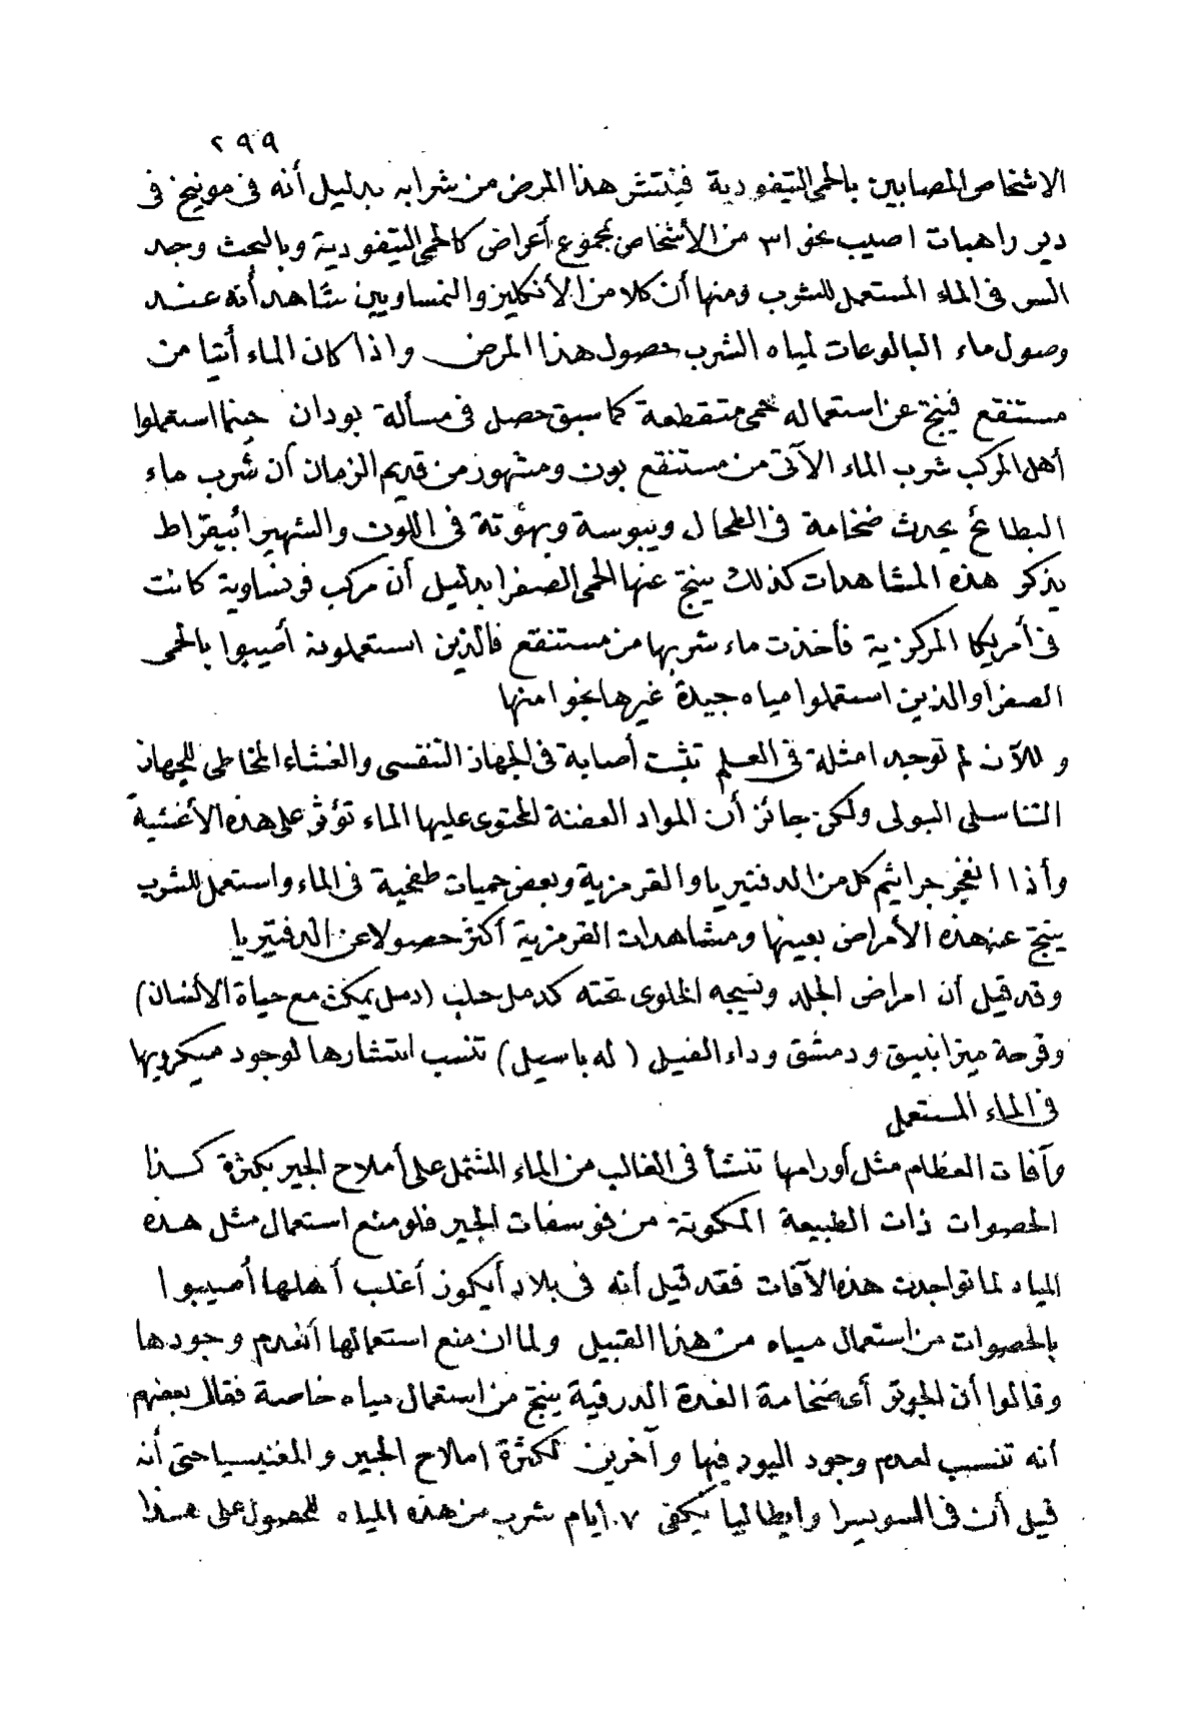 ٢٩٩
الاشخاص المصابين بالحمى التيفودية فينتشر هذا المرض من شرابه بدليل أنه في مونيخ في
دير راهبات اصيب نحو ٣١ من الأشخاص لمجموع أعراض كالحمى التيفودية وبالبحث وجد
السر في الماء المستعمل للشرب ومنها أن كلا من الأنكليز والنمساويين شاهد أنه عند
وصول ماء البالوعات لمياه الشرب حصول هذا المرض واذا كان الماء أتيا من
مستنقع فينتج عن استعماله حمى متقطعة كما سبق حصل في مسألة بودان حينما استعملوا
أهل المركب شرب الماء الآتي من مستنقع بون ومشهور من قديم الزمان أن شرب ماء
البطائح يحدث ضخامة في الطحال ويبوسة وبهوتة في اللون والشهير أبيقراط
يذكر هذه المشاهدات كذلك ينتج عنها الحمى الصفرا بدليل أن مركب فرنساوية كانت
في أمريكا المركزية فأخذت ماء شربها من مستنقع فالذين استعملونه أصيبوا بالحمى
الصفرا والذين استعملوا مياه جيدة غيرها نجوا منها
وللآن لم توجد امثلة في العلم تثبت أصابة في الجهاز التنفسى والغشاء المخاطى للجهاز
التناسلى البولى ولكن جائز أن المواد العفنة المحتوى عليها الماء تؤثر على هذه الأغشية
وأذا انفجر جراثيم كل من الدفتيريا والقرمزية وبعض حميات طفحية في الماء واستعمل للشرب
ينتج عنه هذه الأمراض بعينها ومشاهدات القرمزية أكثر حصولا عن الدفتيريا
وقد قيل أن امراض الجلد ونسيجه الخلوى تحته كدمل حلب (دمل يمكث مع حياة الأنسان)
وقرحة ميزابنيق ودمشق وداء الفيل (له باسيل) تنسب انتشارها لوجود ميكروبها
في الماء المستعمل
وآفات العظام مثل أورامها تنشأ في الغالب من الماء المشتمل على أملاح الجير بكثرة كذا
الحصوات ذات الطبيعة المكونة من فوسفات الجير فلو منع استعمال مثل هذه
المياه لما تواجدت هذه الآفات فقد قيل أنه في بلاد أيكوز أغلب أهلها أصيبوا
بالحصوات من استعمال مياه من هذا القبيل ولما ان منع استعمالها أنعدم وجودها
وقالوا أن الجوتر أى ضخامة الغدة الدرقية ينتج من استعمال مياه خاصة فقال بعضهم
أنه تنسب لعدم وجود اليود فيها وآخرين لكثرة املاح الجير والمغنيسيا حتى أنه
قيل أن في السويسرا وايطاليا يكفى ٧ ايام شرب من هذه المياه للحصول على هذا